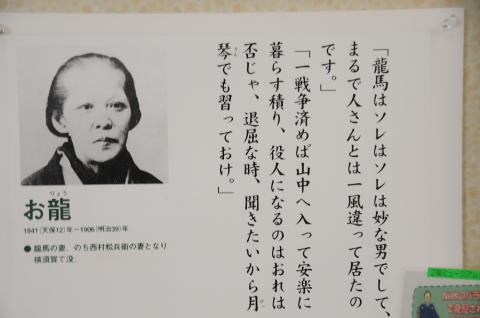 「龍馬はソレはソレは妙な男でして、
まるで人さんとは一風違って居たの
です。」
「一戦争済めば山中へ入って安楽に
暮らす積り、役人になるのはおれは
否じゃ、退屈な時、聞きたいから月
琴でも習っておけ。」
りょう
お龍
1841(天保12)年－1906(明治39)年
●龍馬の妻。のち西村松兵衛の妻となり
横須賀で没。